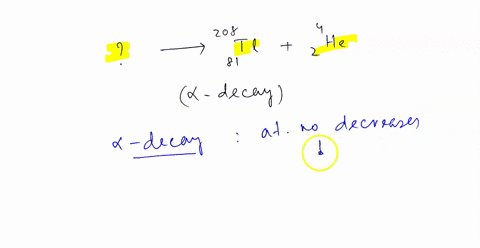 ? ⟶ ²⁰⁸₈₁Tl + ⁴₂He
(α-decay)
α-decay : at. no decreases